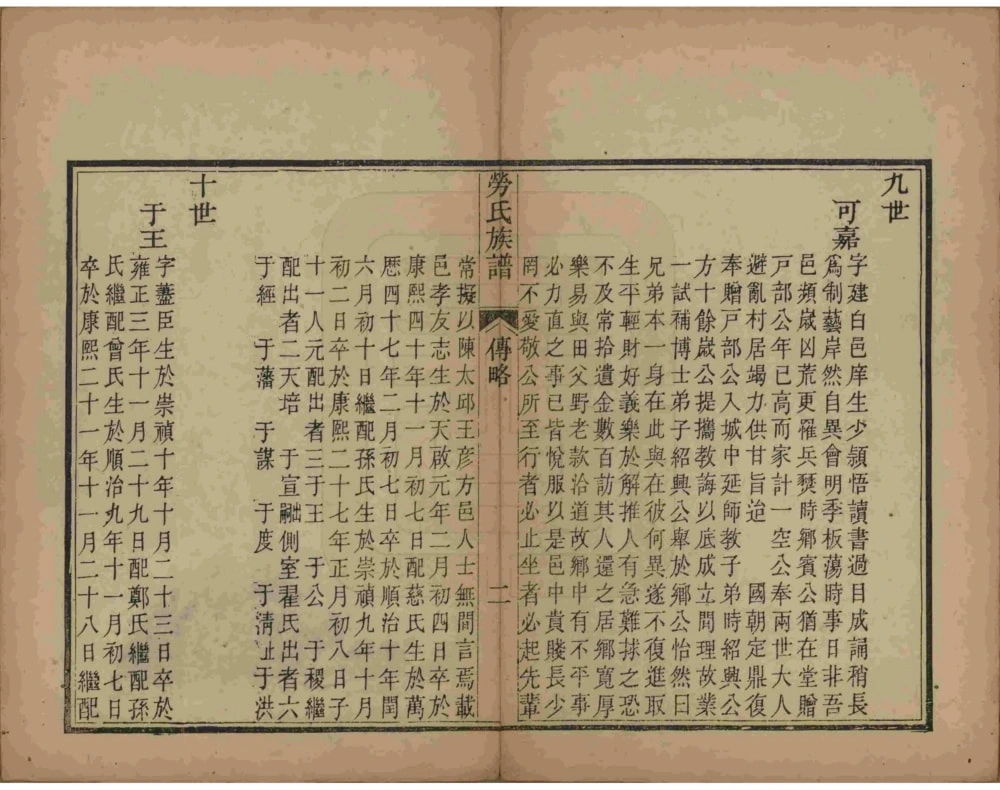 九世
可嘉
字建白邑庠生少頴悟讀書過目成誦稍長
爲制藝岸然自異會明季板蕩時事日非吾
邑頻嵗凶荒更罹兵燹時鄉賓公猶在堂贈
戸部公年已高而家計一空公奉兩世大人
避亂村居竭力供甘旨迨　國朝定鼎復
奉贈戸部公入城中延師教子弟時紹興公
方十餘嵗公提攜教誨以底成立間理故業
一試補博士弟子紹興公舉於鄉公怡然曰
兄弟本一身在此與在彼何異遂不復進取
生平輕財好義樂於解推人有急難捄之恐
不及常拾遺金數百訪其人還之居鄉寬厚
樂易與田父野老款洽道故鄉中有不平事
必力直之事已皆悅服以是邑中貴賤長少
罔不愛敬公所至行者必止坐者必起先輩
勞氏族譜
傳略
二
常擬以陳太邱王彦方邑人士無間言焉載
邑孝友志生於天啟元年二月初四日卒於
康熙四十年十一月初七日配慈氏生於萬
厯四十七年二月初七日卒於順治十年閏
六月初十日繼配孫氏生於崇禎九年十月
初二日卒於康熙二十七年正月初八日子
十一人元配出者三于王　于公　于稷繼
配出者二天培　于宣側室翟氏出者六
于經　于藩　于謀　于度　于淸　于洪
十世
于王
字藎臣生於崇禎十年十月二十三日卒於
雍正三年十一月二十九日配鄭氏繼配孫
氏繼配曾氏生於順治九年十一月初七日
卒於康熙二十一年十一月二十八日繼配